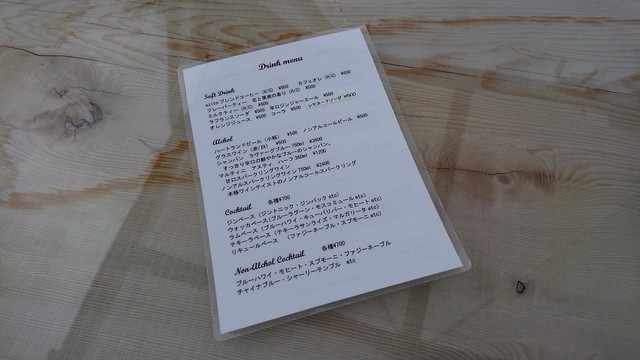 Drink menu
Soft Drink
elite ブレンドコーヒー (H/C) ¥500 カフェオレ (H/C) ¥600
フレーバーティー 花と果実の香り (H/C) ¥500
ミルクティー (H/C) ¥600
ラフランスソーダ ¥500 辛口ジンジャーエール ¥500
オレンジジュース ¥500 コーラ ¥500 レモネードソーダ ¥500
Alchol
ハートランドビール (小瓶) ¥500 ノンアルコールビール ¥500
グラスワイン (赤/白) ¥500
シャンパン ラヴァーグブルー 750ml ¥3800
すっきり辛口の鮮やかなブルーのシャンパン。
マルティニ アスティ ハーフ 360ml ¥1200
甘口スパークリングワイン
ノンアルスパークリングワイン 750ml ¥2400
本格ワインテイストのノンアルコールスパークリング
Cocktail 各種¥700
ジンベース (ジントニック・ジンバック etc)
ウォッカベース (ブルーラグーン・モスコミュール etc)
ラムベース (ブルーハワイ・キューバリバー・モヒート etc)
テキーラベース (テキーラサンライズ・マルガリータ etc)
リキュールベース (ファジーネーブル・スプモーニ etc)
Non-Alchol Cocktail 各種¥700
ブルーハワイ・モヒート・スプモーニ・ファジーネーブル
チャイナブルー・シャーリーテンプル etc